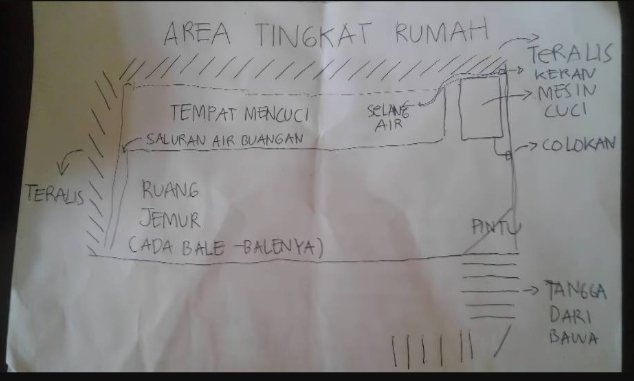 AREA TINGKAT RUMAH
TERALIS
KERAN
MESIN
CUCI
TEMPAT MENCUCI
SELANG
AIR
SALURAN AIR BUANGAN
COLOKAN
TERALIS
RUANG
JEMUR
(ADA BALE-BALENYA)
PINTU
TANGGA
DARI
BAWA